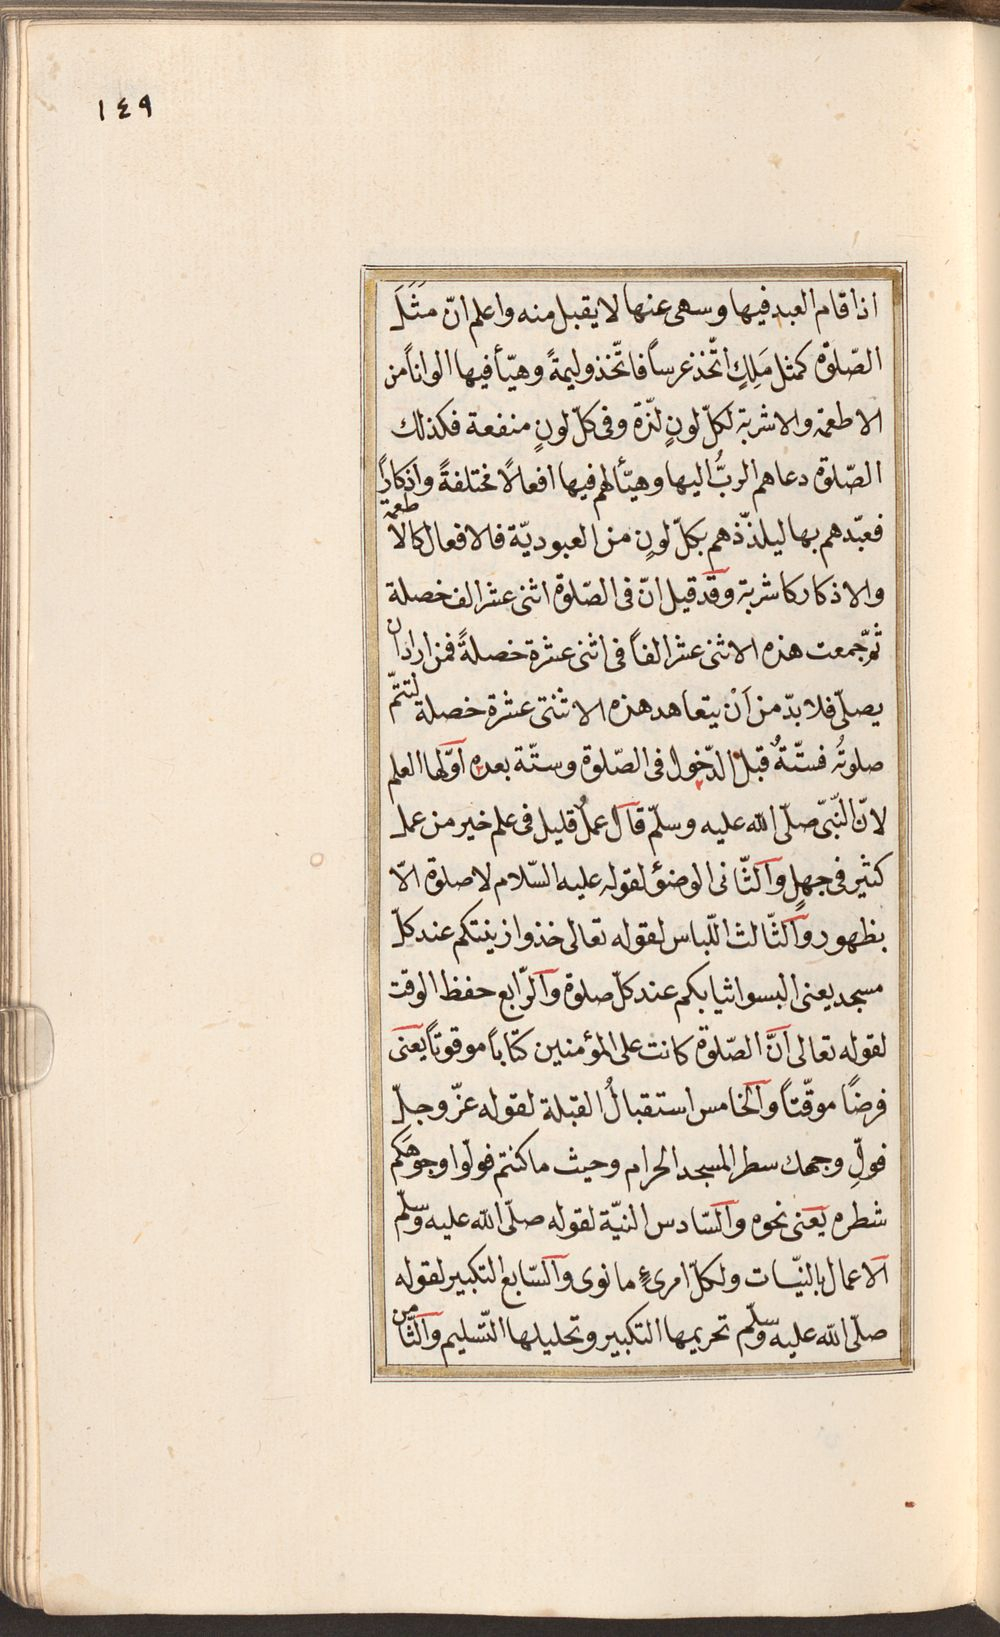 ١٤٩
اذا قام العبد فيها وسهى عنها لا يقبل منه واعلم انّ مَثَلَ
الصّلوة كمثل مَلِكٍ اتّخذ عرساً فاتّخذ وليمةً وهيّأ فيها الواناً من
الاطعمة والاشربة لكلّ لونٍ لذّة وفى كلّ لونٍ منفعة فكذلك
الصّلوة دعاهم الربُّ اليها وهيّأ لهم فيها افعالاً مختلفةً واذكاراً
فعبّدهم بها ليلذّذهم بكلّ لونٍ من العبوديّة فالافعال كالاطعمة
والاذكار كاشربة وقد قيل انّ فى الصّلوة اثنى عشر الف خصلة
ثمّ جمعت هذه الاثنى عشر الفاً فى اثنى عشرة خصلةً فمن اراد ان
يصلّى فلا بدّ من اَنْ يتعاهد هذه الاثنتى عشرة خصلة لتتمّ
صلوتُه فستّةٌ قبل الدّخول فى الصّلوة وستّة بعده اوّلها العلم
لانّ النّبىّ صلّى الله عليه وسلّم قال عملٌ قليل فى علم خير من عمل
كثير فى جهلٍ والثّانى الوضئ لقوله عليه السّلام لا صلوة الّا
بظهور والثّالث اللّباس لقوله تعالى خذوا زينتكم عند كلّ
مسجد يعنى البسوا ثيابكم عند كلّ صلوة والرّابع حفظ الوقت
لقوله تعالى انّ الصّلوة كانت على المؤمنين كتاباً موقوتاً يعنى
فرضًا موقّتاً والخامس استقبالُ القبلة لقوله عزّ وجلّ
فولِّ وجهك سطر المسجد الحرام وحيث ما كنتم فولّوا وجوهكم
شطره يعنى نحوه والسّادس النيّة لقوله صلّى الله عليه وسلّم
الاعمال بالنيّات ولكلّ امرئٍ ما نوى والسّابع التكبير لقوله
صلّى الله عليه وسلّم تحريمها التكبير وتحليلها التّسليم والثّامن